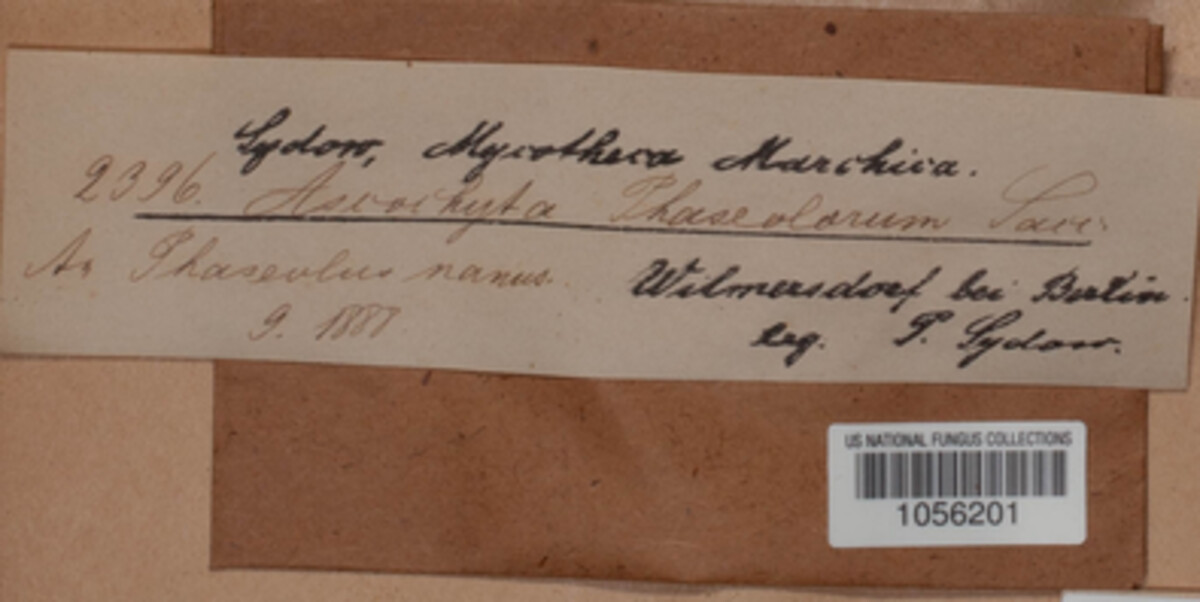 Sydow, Mycotheca Marchica.
2396. Ascochyta Phaseolorum Sacc.
An Phaseolus nanus.
9. 1887
Wilmersdorf bei Berlin.
leg. P. Sydow.
US NATIONAL FUNGUS COLLECTIONS
1056201